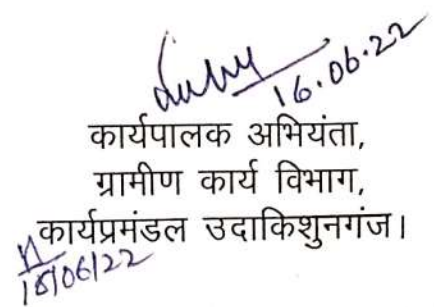 16.06.22
कार्यपालक अभियंता,
ग्रामीण कार्य विभाग,
कार्यप्रमंडल उदाकिशुनगंज।
16/06/22